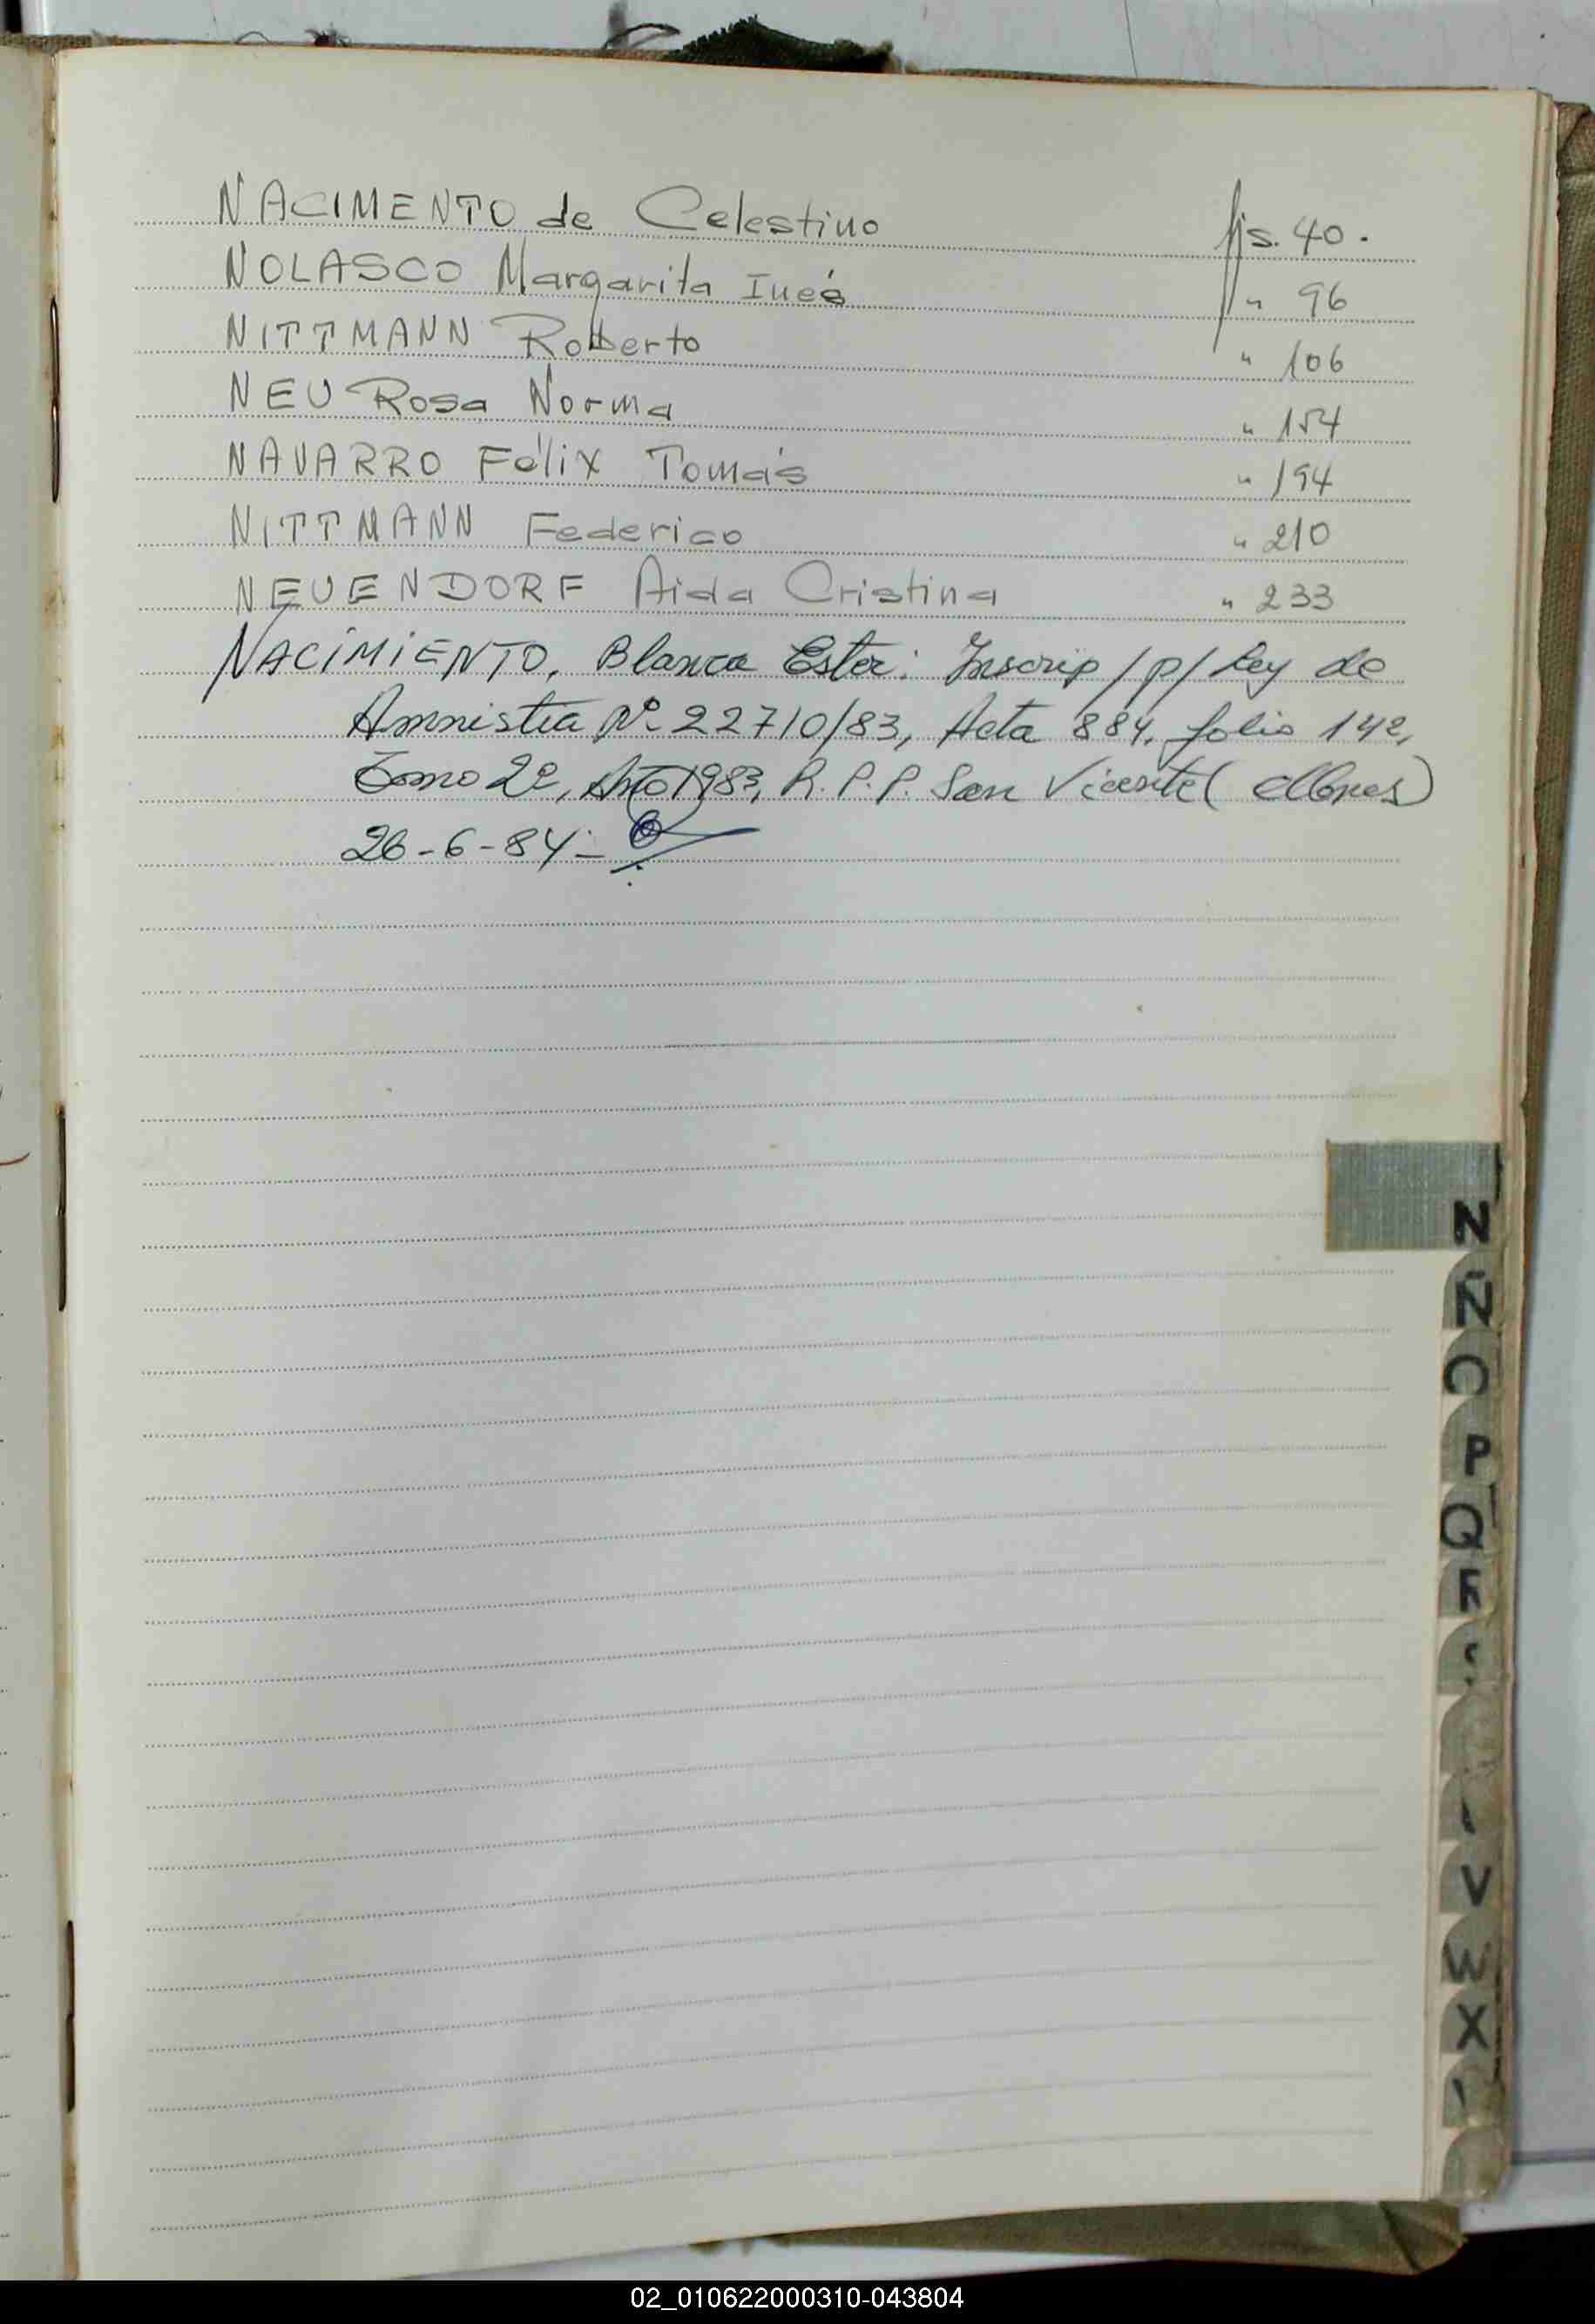 NACIMENTO de Celestino fjs. 40.
NOLASCO Margarita Inés " 96
NITTMANN Roberto " 106
NEU Rosa Norma " 154
NAVARRO Félix Tomás " 194
NITTMANN Federico " 210
NEUENDORF Aida Cristina " 233
NACIMIENTO, Blanca Ester: Inscrip/p/Ley de
Amnistia Nº 22710/83, Acta 884, folio 142,
Tomo 2º, Año 1983, R.P.P. San Vicente (Mnes)
26-6-84-
N
Ñ
O
P
Q
R
V
W
X
02_010622000310-043804